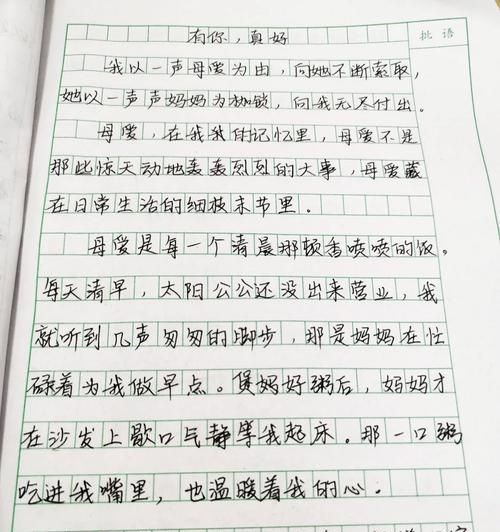 批语
有你，真好
我以一声母爱为由，向她不断索取，
她以一声声妈妈为枷锁，向我无尽付出。
母爱，在我我的记忆里，母爱不是
那些惊天动地轰轰烈烈的大事，母爱藏
在日常生活的细枝末节里。
母爱是每一个清晨那顿香喷喷的饭。
每天清早，太阳公公还没出来营业，我
就听到几声匆匆的脚步，那是妈妈在忙
碌着为我做早点。煲妈好粥后，妈妈才
在沙发上歇口气静等我起床。那一口粥
吃进我嘴里，也温暖着我的心。